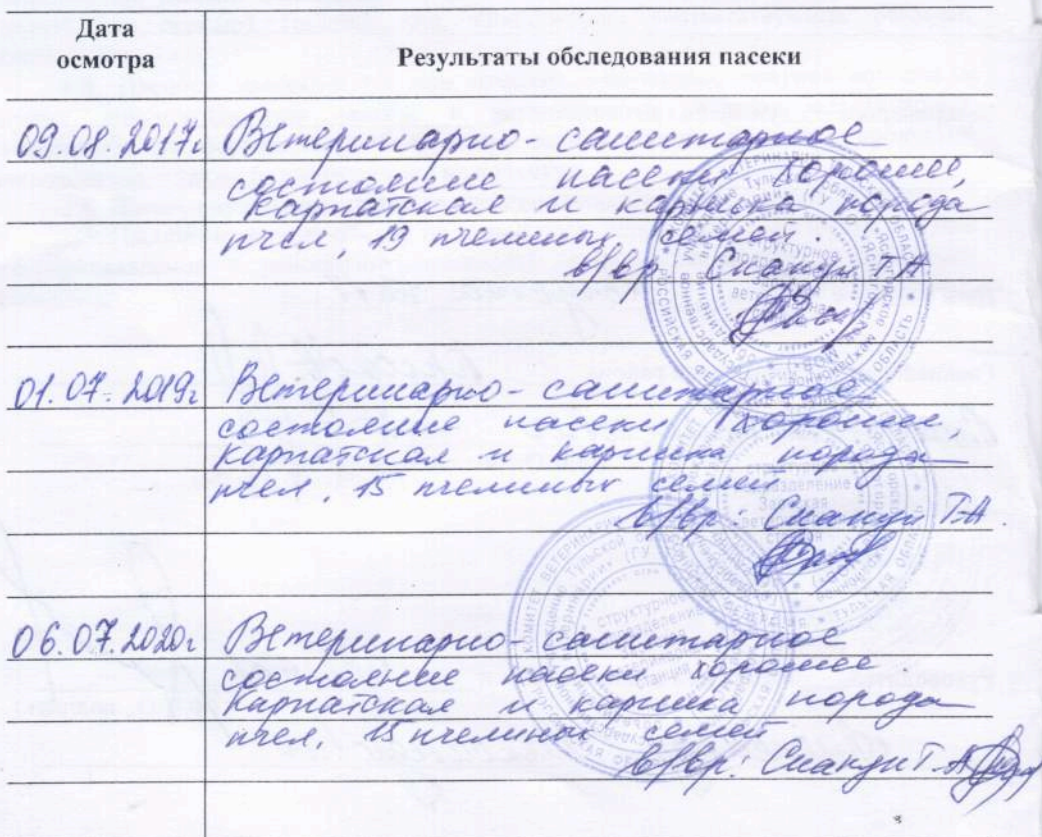 Дата
осмотра
Результаты обследования пасеки
09.08.2017г Ветеринарно-санитарное
состояние пасеки хорошее,
карпатская и карника порода
пчел, 19 пчелиных семей.
в/вр.
01.07.2019г Ветеринарно-санитарное
состояние пасеки хорошее,
карпатская и карника порода
пчел, 15 пчелиных семей
в/вр:
06.07.2020г Ветеринарно-санитарное
состояние пасеки хорошее.
карпатская и карника порода
пчел, 15 пчелиных семей
в/вр: